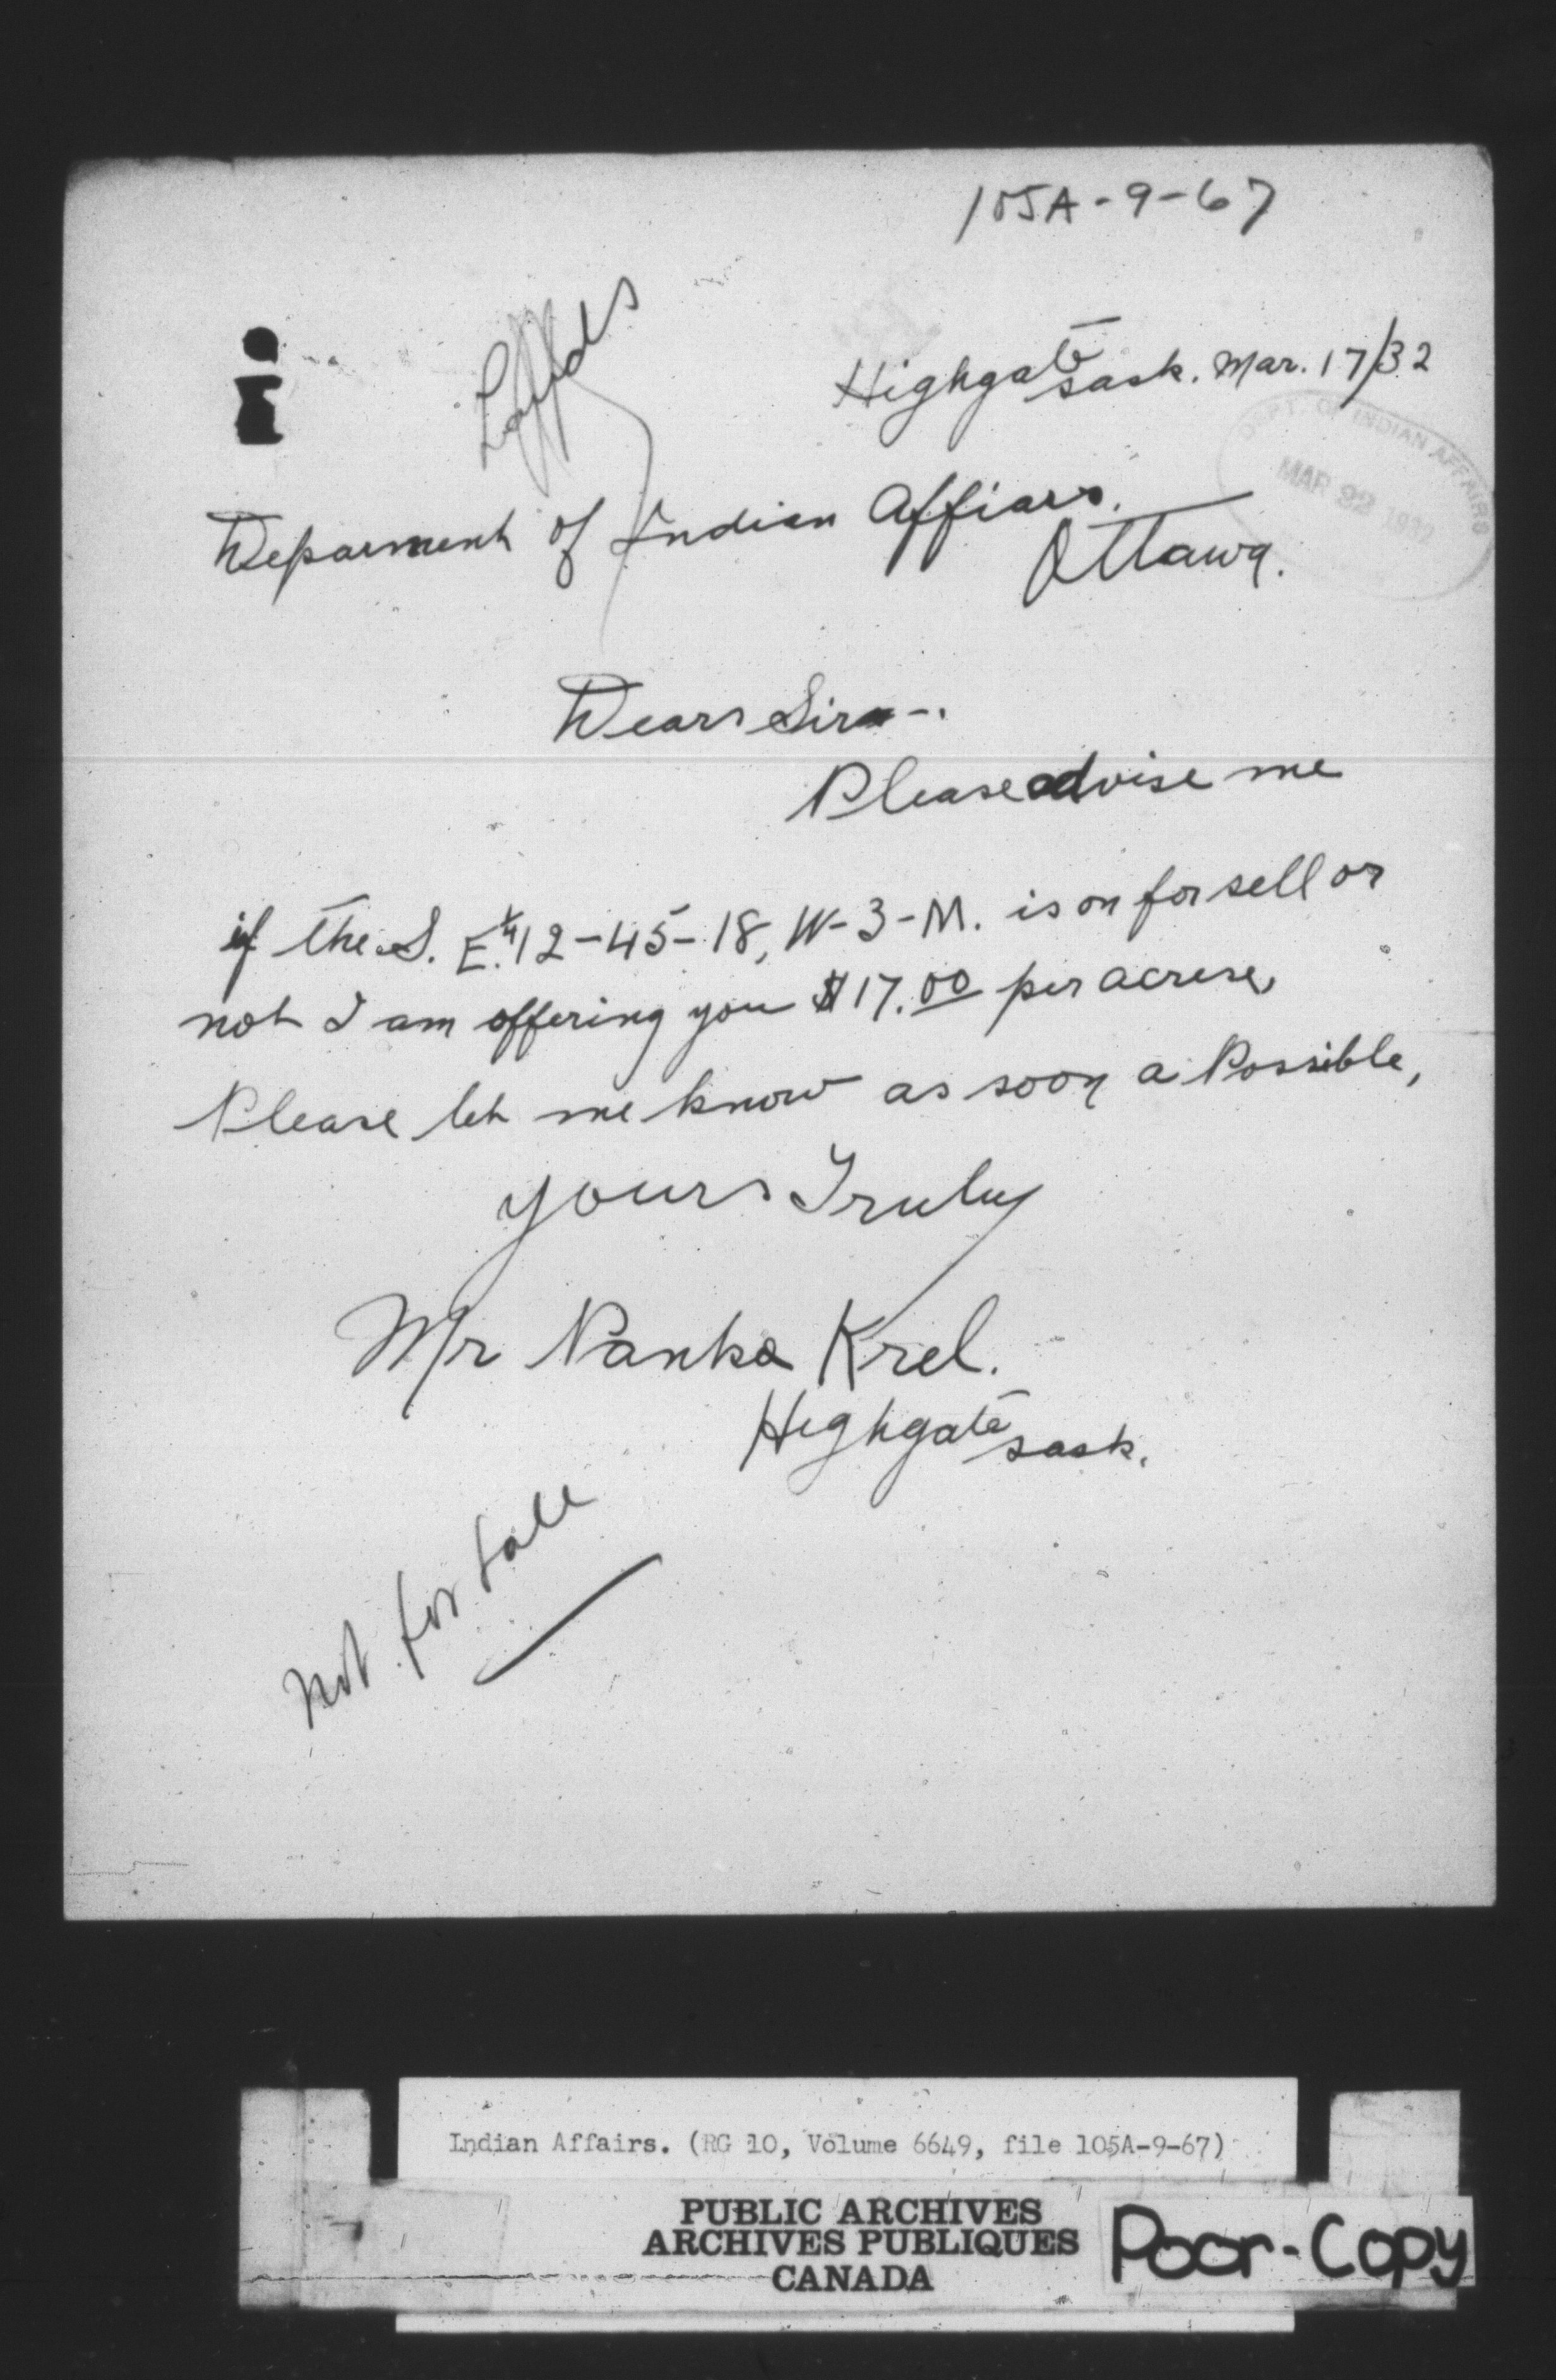 105A-9-67
Highgate Sask. Mar. 17/32
DEPT. OF INDIAN AFFAIRS
MAR 22 1932
Deparment of Indian Affiars.
Ottawa.
Dears Sir -.
Please advise me
if the S. E. 1/4 12-45-18, W-3-M. is on for sell or
not I am offering you $17.00 per acrese,
Please let me know as soon a Possible,
yours Truly
Mr Panko Krel.
Highgate Sask.
Not for sale
Indian Affairs. (RG 10, Volume 6649, file 105A-9-67)
PUBLIC ARCHIVES
ARCHIVES PUBLIQUES
CANADA
Poor-Copy